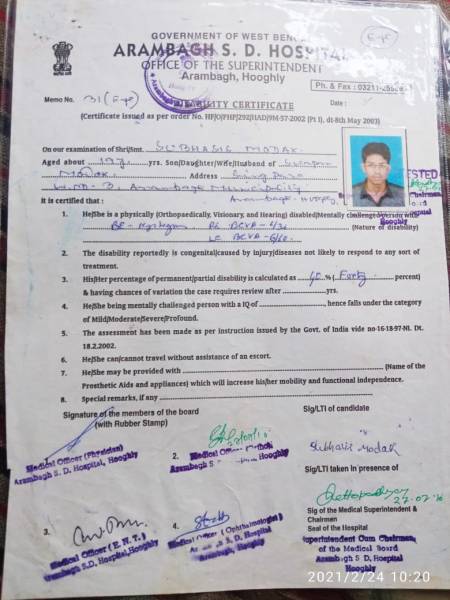 GOVERNMENT OF WEST BEN
ARAMBAGH S. D. HOSPITAL
OFFICE OF THE SUPERINTENDENT
Arambagh, Hooghly
Ph. & Fax : 03211-
Memo No. 31 (Eye)
Date :
DISABILITY CERTIFICATE
(Certificate issued as per order No. HF/O/PHP/292/IAD/9M-57-2002 (Pt I), dt-8th May 2003)
On our examination of Shri/Smt. SUBHASIS MODAK
Aged about 19y yrs. Son/Daughter/Wife/Husband of
MODAK Address
Arambagh Municipality
Arambagh
It is certified that :
1. He/She is a physically (Orthopaedically, Visionary, and Hearing) disabled/Mentally challenged person
BE - RE BCVA - 
(Nature of disability)
LE BCVA - 6/60
2. The disability reportedly is congenital/caused by injury/diseases not likely to respond to any sort of
treatment.
3. His/Her percentage of permanent/partial disability is calculated as 40 % ( Forty percent)
& having chances of variation the case requires review after yrs.
4. He/She being mentally challenged person with a IQ of , hence falls under the category
of Mild/Moderate/Severe/Profound.
5. The assessment has been made as per instruction issued by the Govt. of India vide no-16-18-97-NI. Dt.
18.2.2002.
6. He/She can/cannot travel without assistance of an escort.
7. He/She may be provided with (Name of the
Prosthetic Aids and appliances) which will increase his/her mobility and functional independence.
8. Special remarks, if any
Signature of the members of the board
(with Rubber Stamp)
Sig/LTI of candidate
Subhasis Modak
Medical Officer (Physician)
Arambagh S. D. Hospital, Hooghly
2.
Medical Officer
Arambagh S. Hospital, Hooghly
Sig/LTI taken in presence of
Sig of the Medical Superintendent &
Chairmen
Seal of the Hospital
3.
Medical Officer ( E. N. T. )
Arambagh S.D. Hospital, Hooghly
4.
Medical Officer ( Ophthalmologist )
S. D. Hospital
Arambagh, Hooghly
Superintendent Cum Chairman
of the Medical Board
Arambagh S. D. Hospital
Hooghly
2021/2/24 10:20